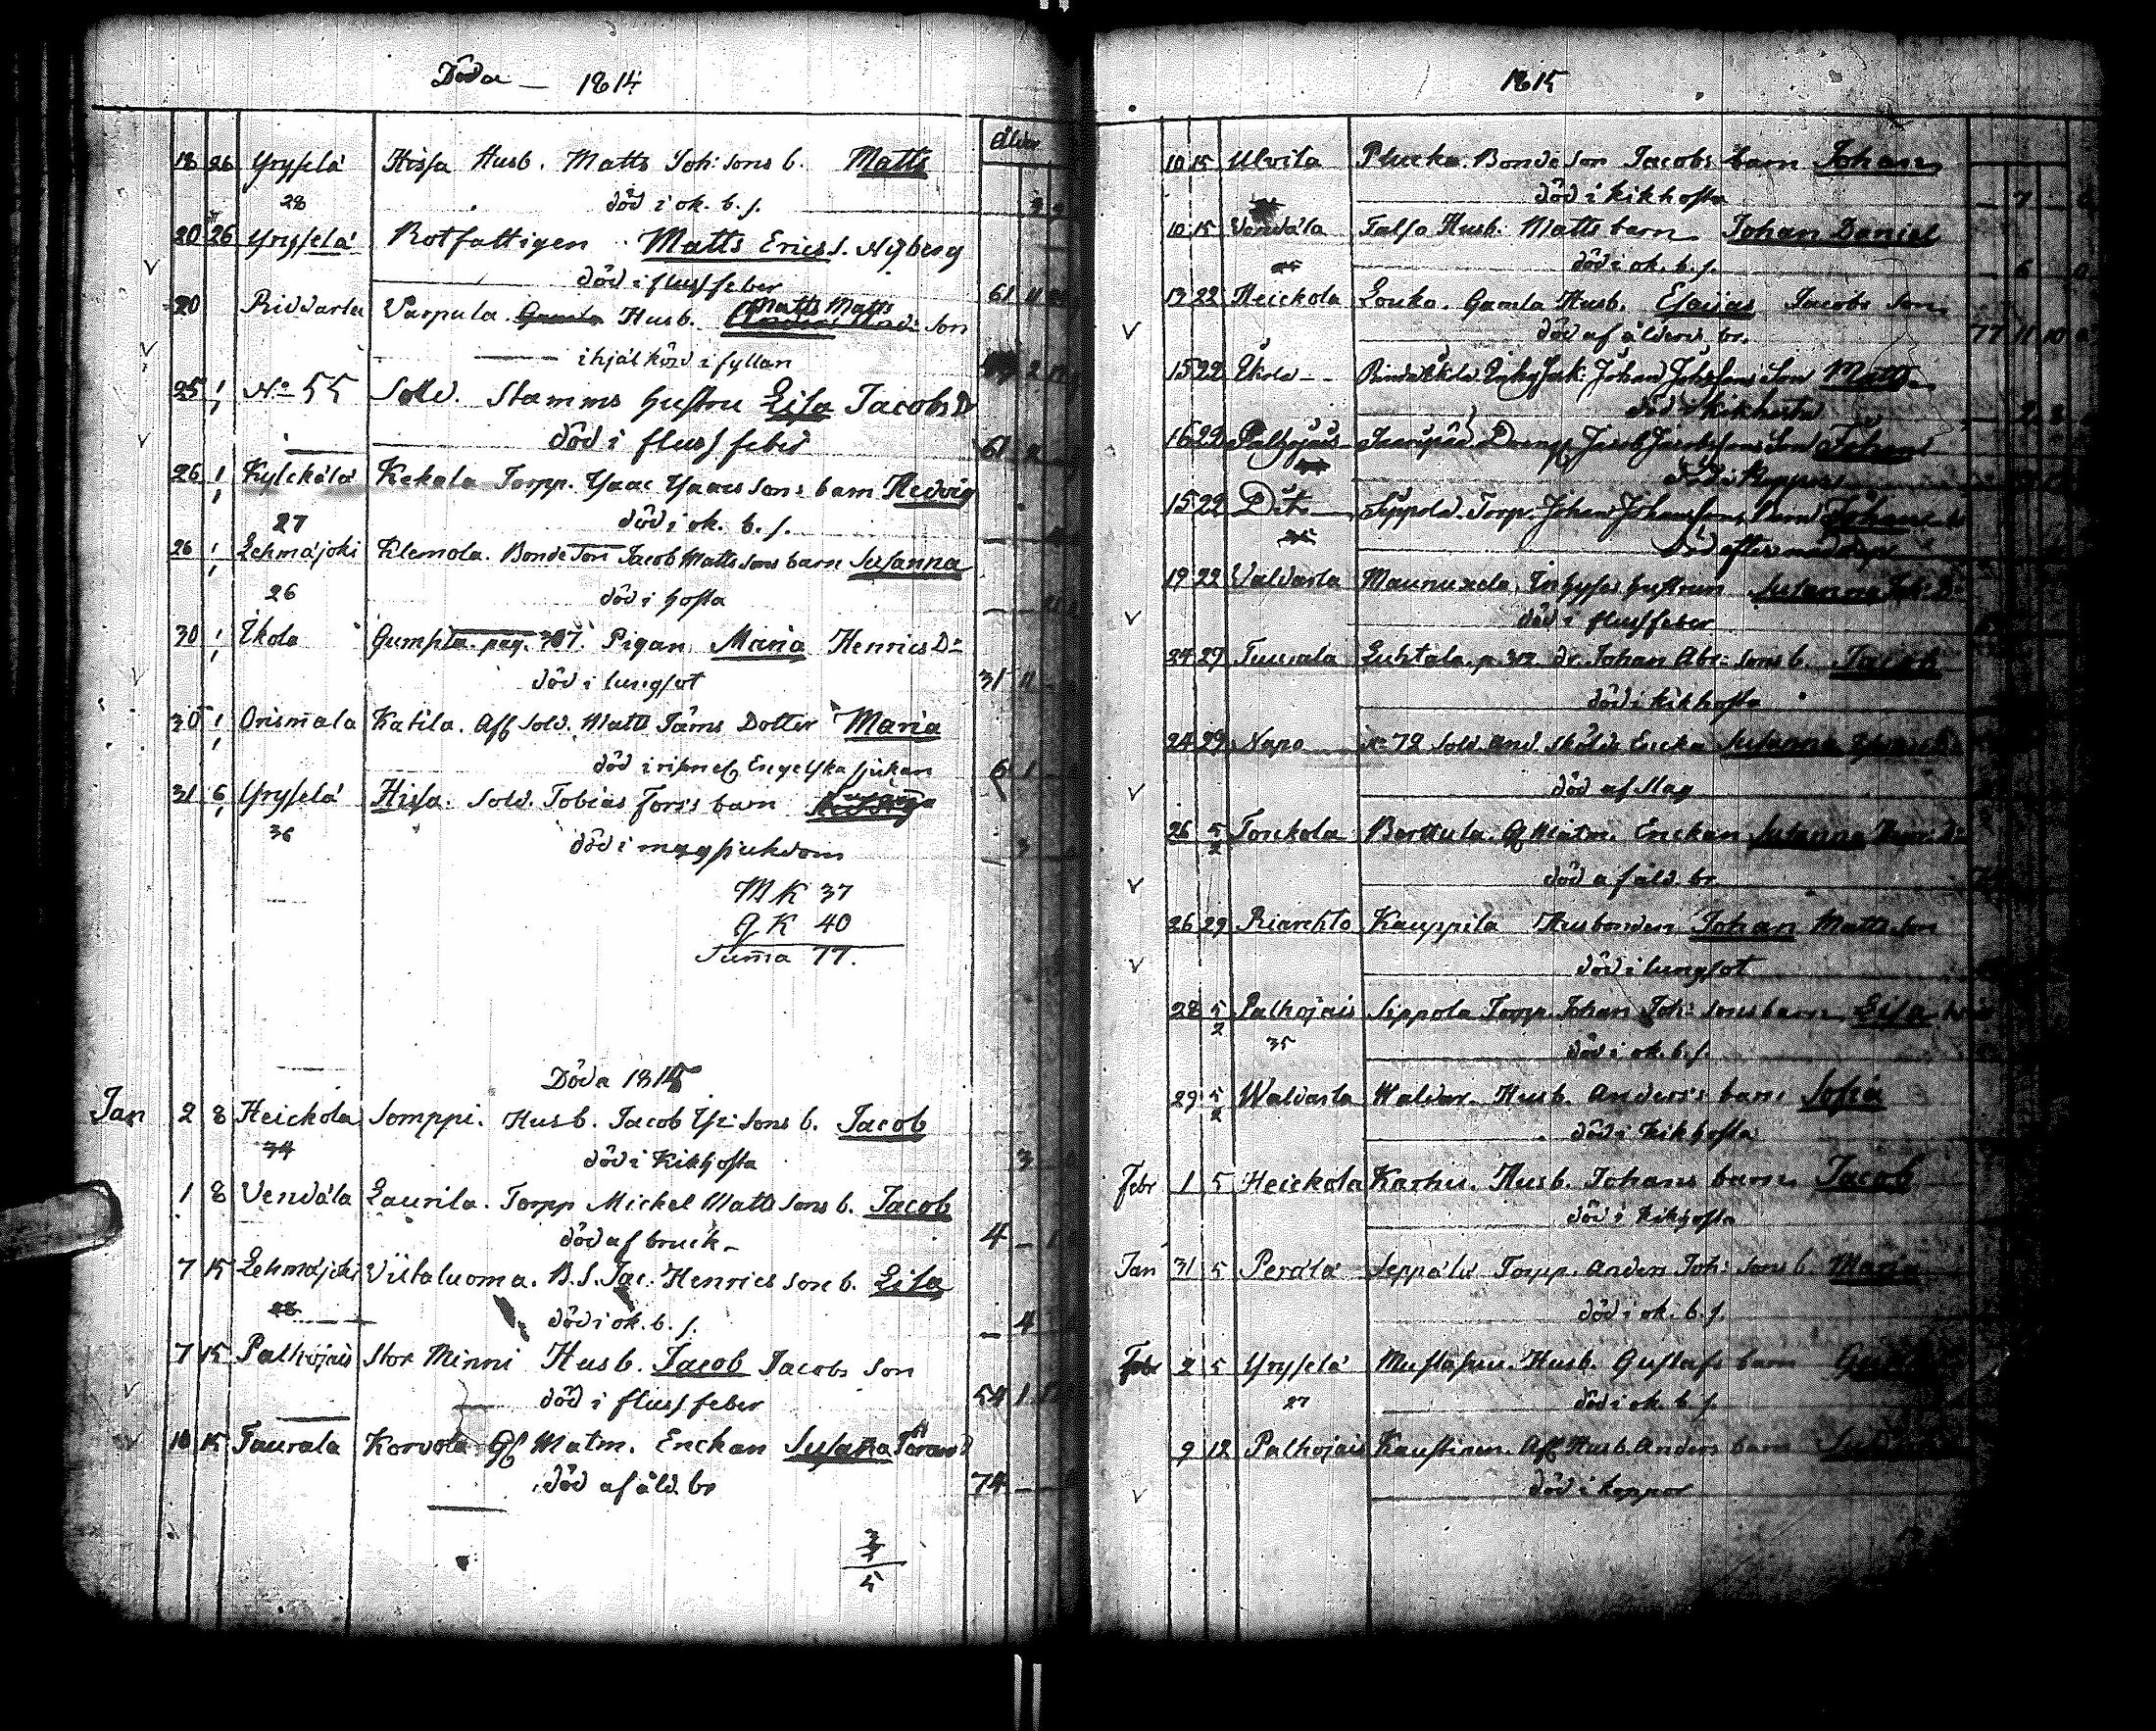 Döda — 1814
Ålder
18 26 Yryselä Hissa Husb. Matts Joh: sons b. Matts
28 död i ok. b. s.
20 26 Yryselä Rotfattigen Matts Erics s. Nyberg
död i fluss feber 61 11
20 Riddarla Varpula. Gamla Husb. Matts Matts son
ihjäl körd i fyllan 2
25 1/1 No 55 Sold. Stamms hustru Lisa Jacobs Dr
död i fluss feber 61 2
26 1/1 Kylckälä Kekola Torpp. Ysaac Ysaacs sons barn Hedvig
27 död i ok. b. s.
26 1/1 Lehmäjoki Klemola. Bonde son Jacob Matts sons barn Susanna
26 död i hosta
30 1/1 Ikola Gumpila. pag. 307. Pigan Maria Henrics Dr
död i lungsot 31 11
30 1/1 Orismala Katila. Aff Sold. Matts Täms Dotter Maria
död i Engelska sjukan 6 1
31 6/1 Yryselä Hissa. Sold. Tobias Fors's barn
36 död i magsjukdom 3
M K 37
Q K 40
Summa 77.
Döda 1815
Jan 2 8 Heickola Somppi. Husb. Jacob Ysr sons b. Jacob
34 död i Kikhosta 3
1 8 Vendälä Laurila. Torpp Mickel Matts sons b. Jacob
död af bruck 4 — 1
7 15 Lehmäjoki Viitaluoma. B. S. Jac. Henrics sons b. Lisa
28 död i ok. b. s. — 4
7 15 Palhojais Stor Minni Husb. Jacob Jacobs son
död i fluss feber 54 1
10 15 Taurala Korvola Gf Matm. Enckan Susanna
död af åld. br 74 —
5
1815
10 15 Ulvila Plucka. Bonde son Jacobs barn Johan
död i kikhosta — 7
10 15 Vendälä Talso Husb. Matts barn Johan Daniel
död i ok. b. s. — 6
17 22 Heickola Louko. Gamla Husb. Esaias Jacobs son
död af ålders br. 77 11 10
15 22 Ikola — Johan Johssons Son Matts
död i kikhosta 2 8
16 22 Palhojais Jacob Jacobssons Son Johan
död i koppor
15 22 Dito Seppola. Torp. Johan Johanssons Barn Johan
Död af
19 22 Valdarla Maunuxela, Inhyses hustrun Susanna Joh: Dr
död i flussfeber
24 29 Taurala Luhtala. p. dr. Johan Abr: sons b. Jacob
död i kikhosta
24 29 Napo No 72 Sold. And. Skölds Encka Susanna
död af slag
26 5/2 Torckola Berttula. Gf Matm. Enckan Susanna Dr
död af åld. br.
26 29 Riarehto Kauppila Husbonden Johan Matts son
död i lungsot
28 5/2 Palhojais Seppola Torpp. Johan Joh: sons barn Lisa
35 död i ok. b. s.
29 5/2 Waldarla Waldar. Husb. Anders's barn Sofia
död i Kikhosta
Febr 1 5 Heickola Karhu. Husb. Johans barn Jacob
död i kikhosta
Jan 31 5 Perälä Seppälä Torpp. Anders Joh: sons b. Maria
död i ok. b. s.
Febr 2 5 Yryselä Mustasuu. Husb. Gustafs barn
27 död i ok. b. s.
9 12 Palhojais Kaustinen. Aff Husb. Anders barn
död i koppor